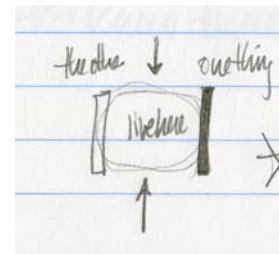 the other one thing
live here